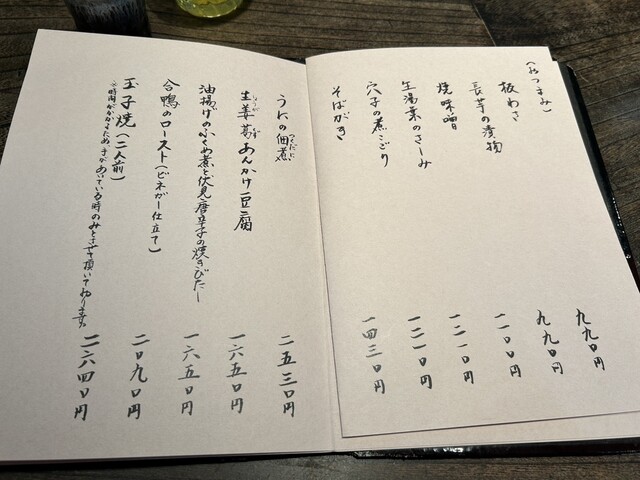 (おつまみ)
板わさ 九九〇円
長芋の漬物 九九〇円
焼味噌 一一〇〇円
生湯葉のさしみ 一二一〇円
穴子の煮こごり 一二一〇円
そばがき 一四三〇円
うにの佃煮 二五三〇円
つくだに
生姜葛あんかけ豆腐 一六五〇円
しょうが くず
油揚げのふくめ煮と伏見唐辛子の焼きびたし 一六五〇円
合鴨のロースト(ビネガー仕立て) 二〇九〇円
玉子焼(二人前) 二六四〇円
※時間がかかるため手があいている時のみとさせて頂いております。